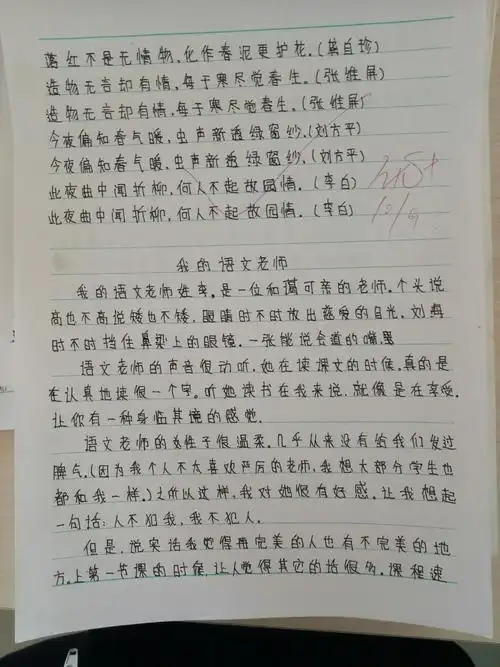 落红不是无情物,化作春泥更护花。(龚自珍)
造物无言却有情,每于寒尽觉春生。(张维屏)
造物无言却有情,每于寒尽觉春生。(张维屏)
今夜偏知春气暖,虫声新透绿窗纱。(刘方平)
今夜偏知春气暖,虫声新透绿窗纱。(刘方平)
此夜曲中闻折柳,何人不起故园情。(李白)
此夜曲中闻折柳,何人不起故园情。(李白)
我的语文老师
我的语文老师姓李。是一位和蔼可亲的老师。个头说
高也不高说矮也不矮,眼睛时不时放出慈爱的目光,刘海
时不时挡住鼻梁上的眼镜。一张能说会道的嘴
语文老师的声音很动听,她在读课文的时候,真的是
在认真地读很一个字。听她读书在我来说,就像是在享受。
让你有一种身临其境的感觉。
语文老师的性子很温柔。几乎从来没有给我们发过
脾气。(因为我个人不太喜欢严厉的老师,我想大部分学生也
都和我一样。)之所以这样,我对她很有好感。让我想起
一句话:人不犯我,我不犯人。
但是,说实话我觉得再完美的人也有不完美的地
方。上第一节课的时候,让人觉得其它的话很多。课程速